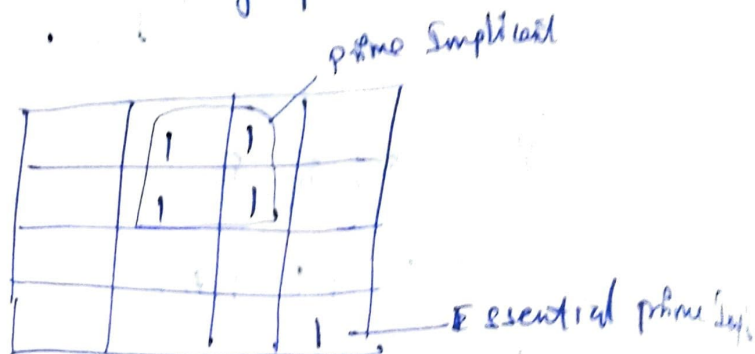 prime Implicant
1 1
1 1
1 Essential prime Imp.